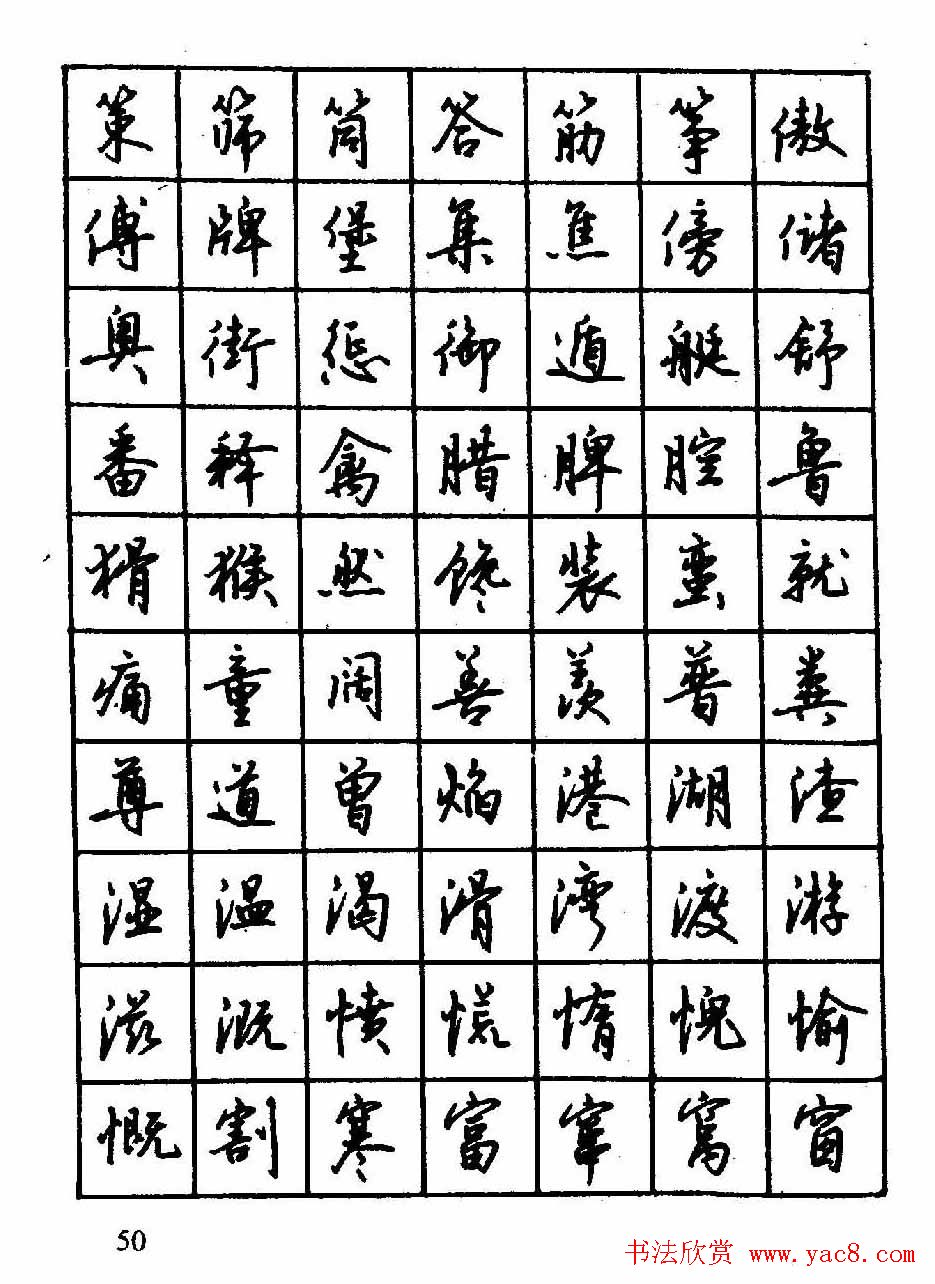 策筛筒答筋筝傲
傅牌堡集焦傍储
奥街惩御遁艇舒
番释禽腊脾腔鲁
猾猴然馋装蛮就
痛童阔善羡普粪
尊道曾焰港湖渣
湿温渴滑湾渡游
滋溉愤慌惰愧愉
慨割寒富窜窝窗
50
书法欣赏 www.yac8.com